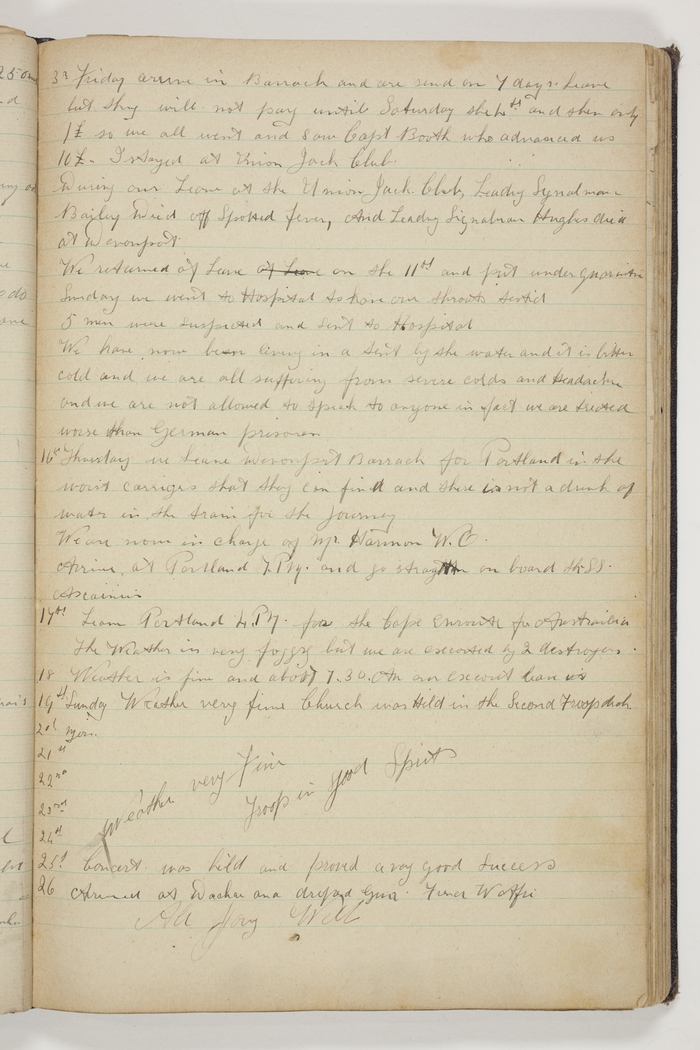 3rd Friday arrive in Barrack and are send on 7 days Leave
but they will not pay until Saturday the and then only
1£ so we all went and saw Capt Booth who advanced us
10£. I stayed at Union Jack Club.
During our Leave at the Union Jack Club, Leading Synalman
Bayley Died off Spotted fever, And Leading Signalman Hughes died
at Devonport.
We returned of Leave of Leave on the 11th and put under
Sunday we went to Hospital to have our throats tested
5 men were suspected and sent to Hospital
We have now been living in a tent by the water and it is bitter
cold and we are all suffering from severe colds and headache
and we are not allowed to speak to anyone in fact we are treated
worse than German prisoner
16th Thursday we Leave Devonport Barrack for Portland in the
worst carriges that they can find and there is not a drink of
water in the train for the Journey
We are now in charge of Mr. Harmon W.O.
Arrive at Portland 7. P.M. and go on board the SS.
Ascanius
17th Leave Portland 4. P.M. for the Cape Enroute for Australia
The Weather is very foggy but we are escorted by 2 destroyers.
18 Weather is fine and about 7.30. Am our escort leave us
19th Sunday Weather very fine Church was Held in the Second Troopdeck
20th
21st
22nd Weather very Fine
23rd Troop in good Spirits
24th
25th Concert was held and proved a very good Success
26 Arrived at Dackar and
All Going Well